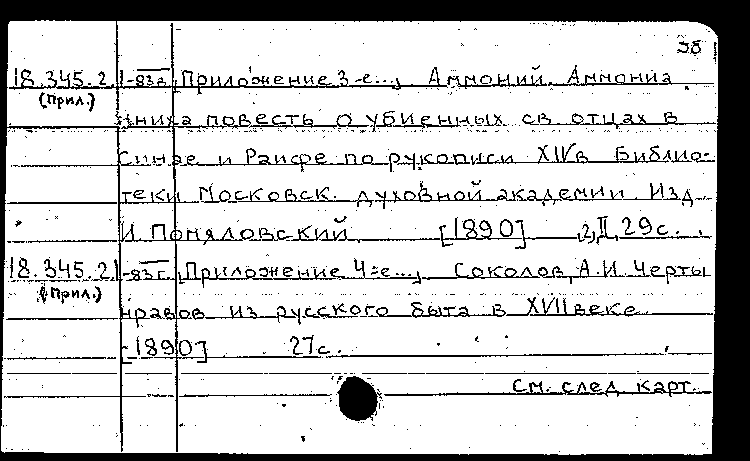 38
18.345.2 -83д [Приложение 3-е..., Аммоний. Аммония
(Прил.) мниха повесть о убиенных св. отцах в
Синае и Раифе по рукописи XIVв Библио-
теки Московск. духовной академии Изд
И. Помяловский [1890] 2, II, 29с.
18.345.2 -83г [Приложение 4-е..., Соколов, А.И. Черты
(Прил.) нравов из русского быта в XVII веке
[1890] 27с.
См. след карт.